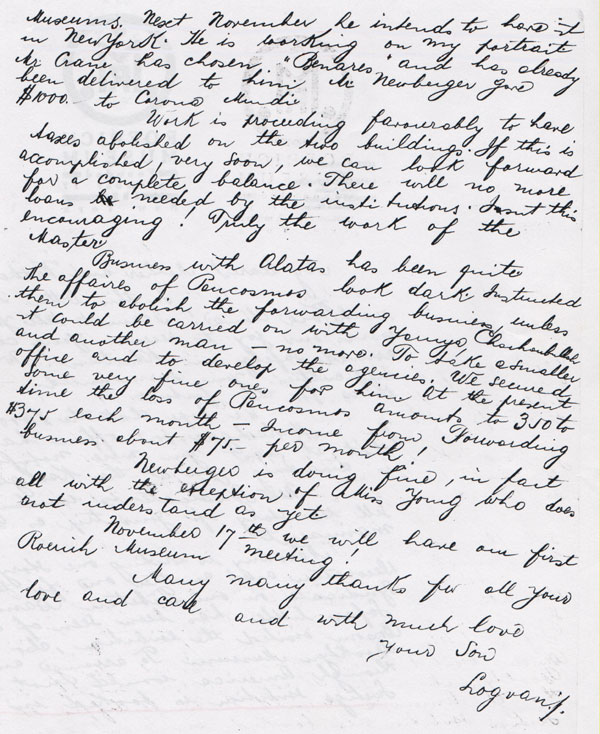 Museums. Next November he intends to have it
in New York. He is working on my portrait
Mr Crane has chosen "Benares" and has already
been delivered to him. Mr Newberger gave
$1000- to Corona Mundi
Work is proceeding favourably to have
taxes abolished on the two buildings. If this is
accomplished, very soon, we can look forward
for a complete balance. There will no more
loans be needed by the institutions. Isn't this
encouraging! Truly the work of the
Master
Business with Alatas has been quite
The affaires of Pancosmos look dark. Instructed
them to abolish the forwarding business, unless
it could be carried on with Young,
and another man - no more. To take a smaller
office and to develop the agencies. We secured
some very fine ones for him At the present
time the loss of Pancosmos amounts to 350 to
$375 each month - Income from Forwarding
business about $75.- per month!
Newberger is doing fine, in fact
all with the exception of Miss Young who does
not understand as yet
November 17th we will have our first
Roerich Museum meeting!
Many many thanks for all your
love and care and with much love
Your Son
Logvan